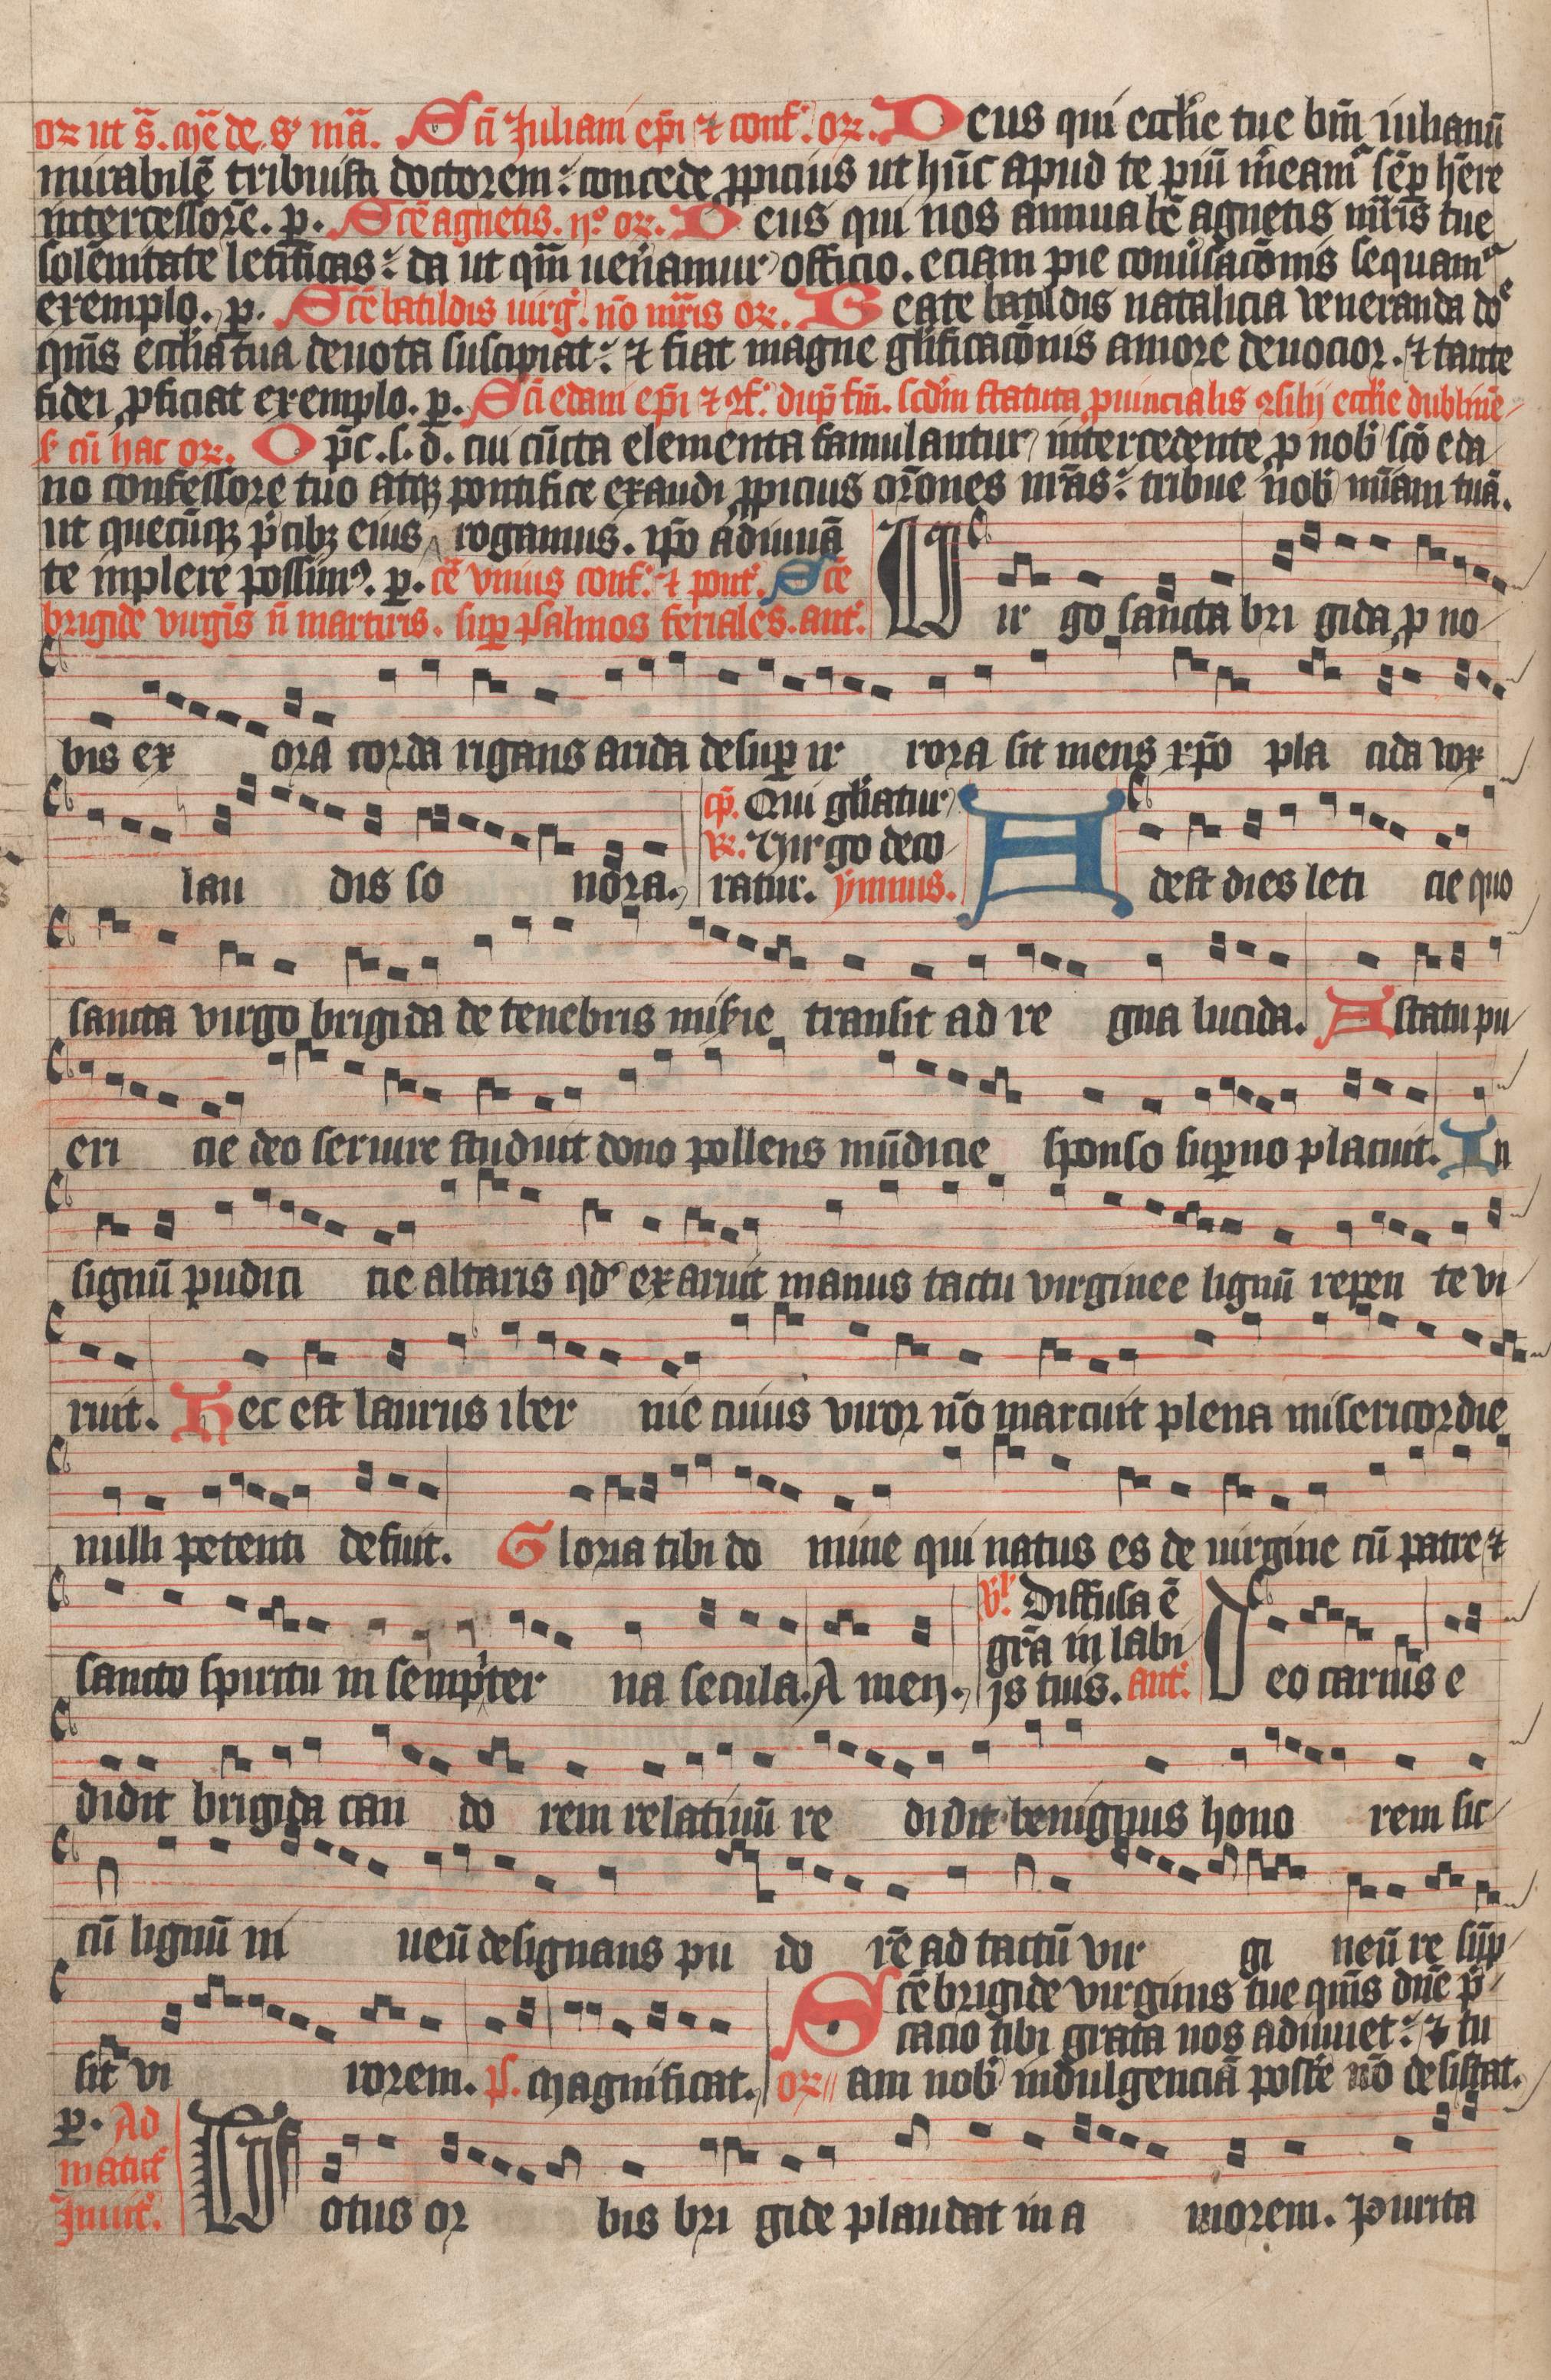 oꝝ ut s̄. M̄e de. s̄ mā. Sc̄i Juliani ep̄i ⁊ conf. oꝝ. Deus qui eccl̄ie tue bm̄ iulianū
mirabilē tribuisti doctorem: concede ꝓpicius ut hūc apud te piū m̄eamr̄ sēp h̄ere
intercessorē. p. Sc̄e agnetis. ijº oꝝ. Deus qui nos annua bē agnetis m̄ris tue
solēnitate letificas: da ut qm̄ ueneramur officio. eciam pie conuersac̄onis sequamr̄
exemplo. p. Sc̄e batildis uirḡ. nō m̄ris oꝝ. Beate batildis natalicia veneranda do
qm̄s eccl̄ia tua deuota suscipiat: ⁊ fiat magne gl̄ificac̄onis amore deuocior. ⁊ tante
fidei ꝓficiat exemplo. p. Sc̄i edani ep̄i ⁊ ꝯf. dup̄ fm̄. scd̄m statuta ꝓuincialis ꝯsilij eccl̄ie dublinē
s̄ cū hac oꝝ. O p̄c. s. d̄. cui cūcta elementa famulantur intercedente ꝓ nob̄ sc̄o eda
no confessore tuo atqꝫ pontifice exaudi ꝓpicius or̄ones nr̄as: tribue nob̄ m̄iam tuā.
ut quecūqꝫ p̄cibꝫ eius rogamus. ip̄o adiuuā
te inplere possimꝰ. p. cē vnius conf. ⁊ pont. Sc̄e
brigide virgīs n̄ martiris. suꝑ psalmos feriales. ant.
Uir go sancta bri gida ꝓ no
bis ex ora corda rigans arida desuꝑ ir rora sit mens xp̄o pla cida vox
lau dis so nora.
cp̄. Qui gl̄iatur
℟. Virgo deco
ratur. ymnus.
Adest dies leti cie quo
sancta virgo brigida de tenebris mis̄ie transit ad re gna lucida. A statu pu
eri cie deo seruire studuit dono pollens mūdicie sponso suꝑno placuit. In
signū pudici cie altaris qd̄ exaruit manus tactu virginee lignū repen te vi
ruit. Hec est laurus iber nie cuius viror nō marcuit plena misericordie
nulli petenti defuit. Gloria tibi do mine qui natus es de uirgine cū patre ⁊
sancto spiritu in sempiter na secula. A men.
℣. Diffusa ē
gr̄a in labi
js tuis. ant.
Deo carnis e
didit brigida can do rem relatiuū re didit benignus hono rem sic
cū lignū in ueū designans pu do rē ad tactū vir gi neū re sūp
sit vi rorem. ps. Magnificat.
Sc̄e brigide virginis tue qm̄s dn̄e p̄
cacio tibi grata nos adiuuet: ⁊ tu
oꝝ am nob̄ indulgenciā postē nō desistat.
p. Ad
matut̄
Inuit.
Totus or bis bri gide plaudat in a morem. Purita